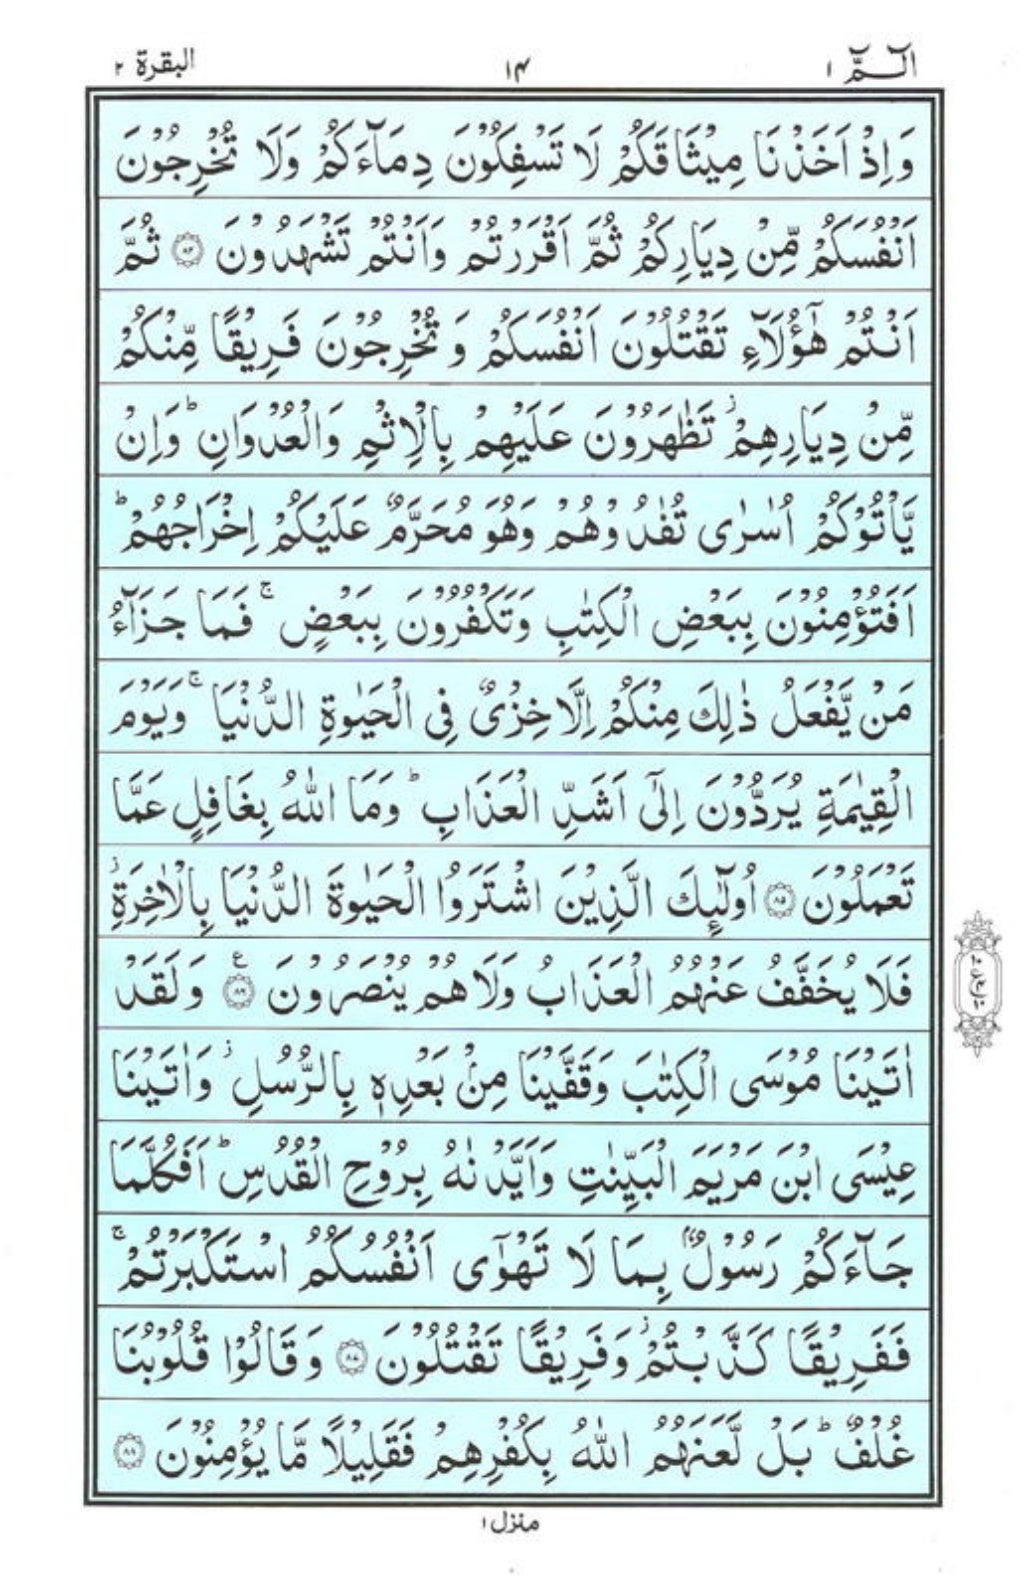 الٓـمّٓ ۱
۱۴
البقرة ۲
وَاِذْ اَخَذْنَا مِيْثَاقَكُمْ لَا تَسْفِكُوْنَ دِمَآءَكُمْ وَلَا تُخْرِجُوْنَ
اَنْفُسَكُمْ مِّنْ دِيَارِكُمْ ثُمَّ اَقْرَرْتُمْ وَاَنْتُمْ تَشْهَدُوْنَ ﴿۸۴﴾ ثُمَّ
اَنْتُمْ هٰٓؤُلَآءِ تَقْتُلُوْنَ اَنْفُسَكُمْ وَ تُخْرِجُوْنَ فَرِيْقًا مِّنْكُمْ
مِّنْ دِيَارِهِمْ ز تَظٰهَرُوْنَ عَلَيْهِمْ بِالْاِثْمِ وَالْعُدْوَانِ ؕ وَاِنْ
يَّاْتُوْكُمْ اُسٰرٰى تُفٰدُوْهُمْ وَهُوَ مُحَرَّمٌ عَلَيْكُمْ اِخْرَاجُهُمْ ؕ
اَفَتُؤْمِنُوْنَ بِبَعْضِ الْكِتٰبِ وَتَكْفُرُوْنَ بِبَعْضٍ ۚ فَمَا جَزَآءُ
مَنْ يَّفْعَلُ ذٰلِكَ مِنْكُمْ اِلَّا خِزْىٌ فِى الْحَيٰوةِ الدُّنْيَا ۚ وَيَوْمَ
الْقِيٰمَةِ يُرَدُّوْنَ اِلٰٓى اَشَدِّ الْعَذَابِ ؕ وَمَا اللّٰهُ بِغَافِلٍ عَمَّا
تَعْمَلُوْنَ ﴿۸۵﴾ اُولٰٓئِكَ الَّذِيْنَ اشْتَرَوُا الْحَيٰوةَ الدُّنْيَا بِالْاٰخِرَةِ ز
فَلَا يُخَفَّفُ عَنْهُمُ الْعَذَابُ وَلَا هُمْ يُنْصَرُوْنَ ﴿۸۶﴾ ع وَلَقَدْ
اٰتَيْنَا مُوْسَى الْكِتٰبَ وَقَفَّيْنَا مِنْۢ بَعْدِهٖ بِالرُّسُلِ ز وَاٰتَيْنَا
عِيْسَى ابْنَ مَرْيَمَ الْبَيِّنٰتِ وَاَيَّدْنٰهُ بِرُوْحِ الْقُدُسِ ؕ اَفَكُلَّمَا
جَآءَكُمْ رَسُوْلٌۢ بِمَا لَا تَهْوٰٓى اَنْفُسُكُمُ اسْتَكْبَرْتُمْ ۚ
فَفَرِيْقًا كَذَّبْتُمْ ز وَفَرِيْقًا تَقْتُلُوْنَ ﴿۸۷﴾ وَقَالُوْا قُلُوْبُنَا
غُلْفٌ ؕ بَلْ لَّعَنَهُمُ اللّٰهُ بِكُفْرِهِمْ فَقَلِيْلًا مَّا يُؤْمِنُوْنَ ﴿۸۸﴾
منزل ۱